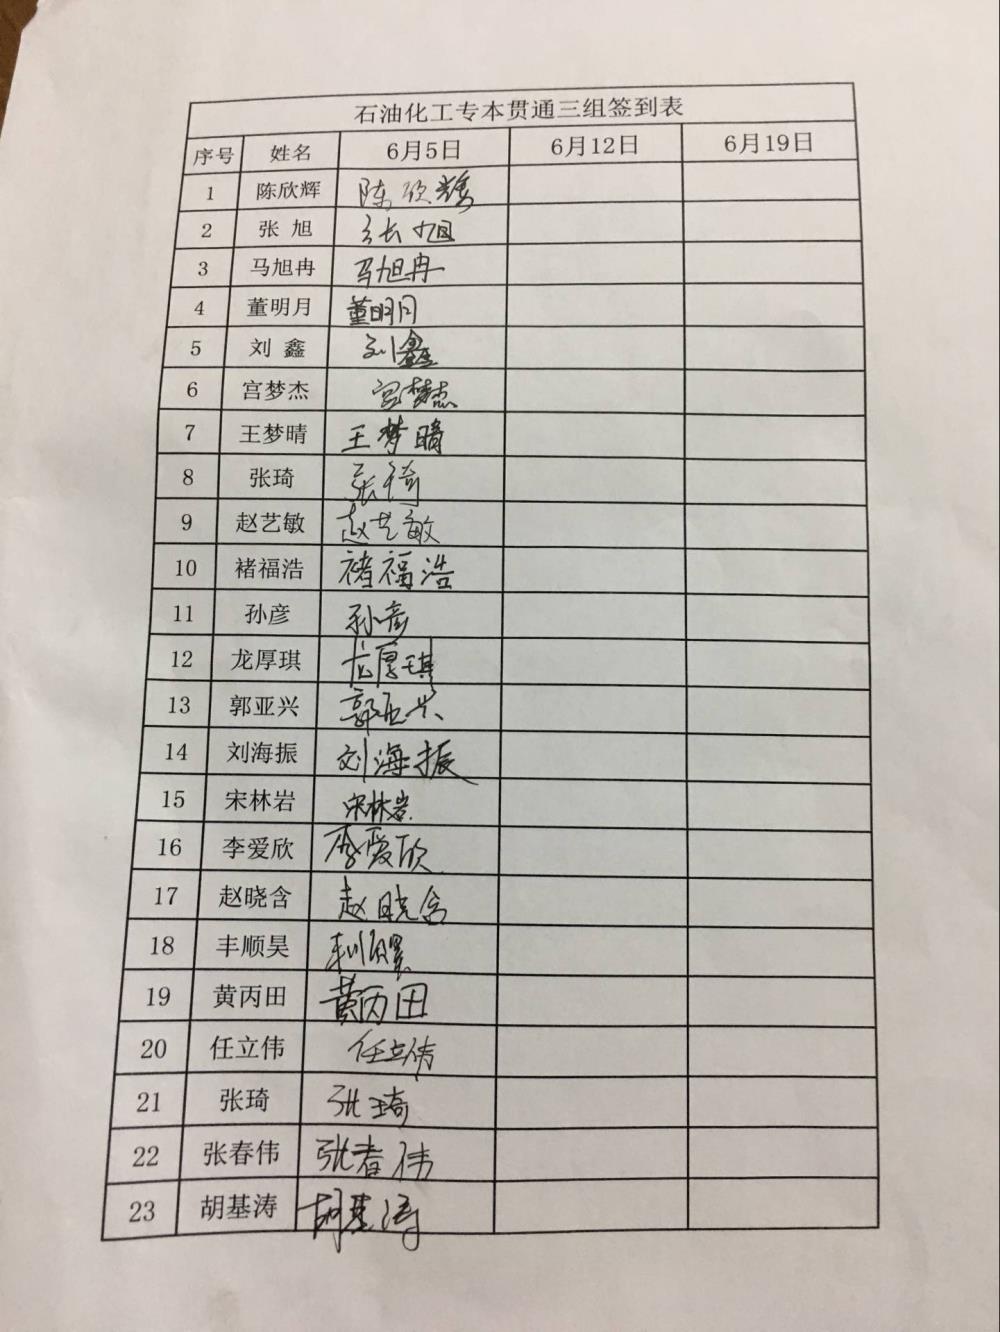 石油化工专本贯通三组签到表
序号 姓名 6月5日 6月12日 6月19日
1 陈欣辉 陈欣辉
2 张旭 张旭
3 马旭冉 马旭冉
4 董明月 董明月
5 刘鑫 刘鑫
6 宫梦杰 宫梦杰
7 王梦晴 王梦晴
8 张琦 张琦
9 赵艺敏 赵艺敏
10 褚福浩 褚福浩
11 孙彦 孙彦
12 龙厚琪 龙厚琪
13 郭亚兴 郭亚兴
14 刘海振 刘海振
15 宋林岩 宋林岩
16 李爱欣 李爱欣
17 赵晓含 赵晓含
18 丰顺昊 丰顺昊
19 黄丙田 黄丙田
20 任立伟 任立伟
21 张琦 张琦
22 张春伟 张春伟
23 胡基涛 胡基涛